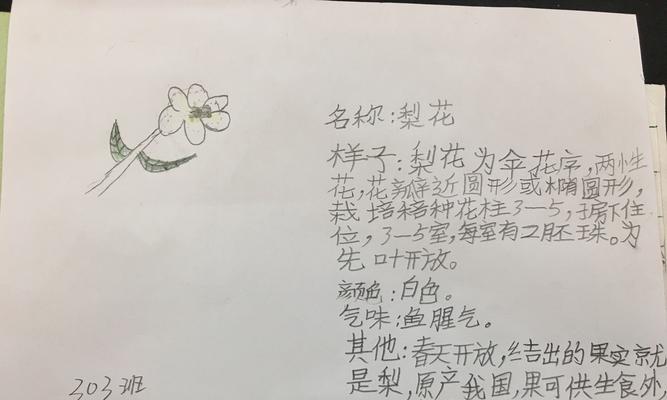 名称:梨花
样子:梨花为伞花序,两性
花,花瓣近圆形或椭圆形,
栽培种花柱3—5,子房下位
位,3—5室,每室有2胚珠。为
先叶开放。
颜色:白色。
气味:鱼腥气。
其他:春天开放,结出的果实就
是梨,原产我国,果可供生食外,
303班